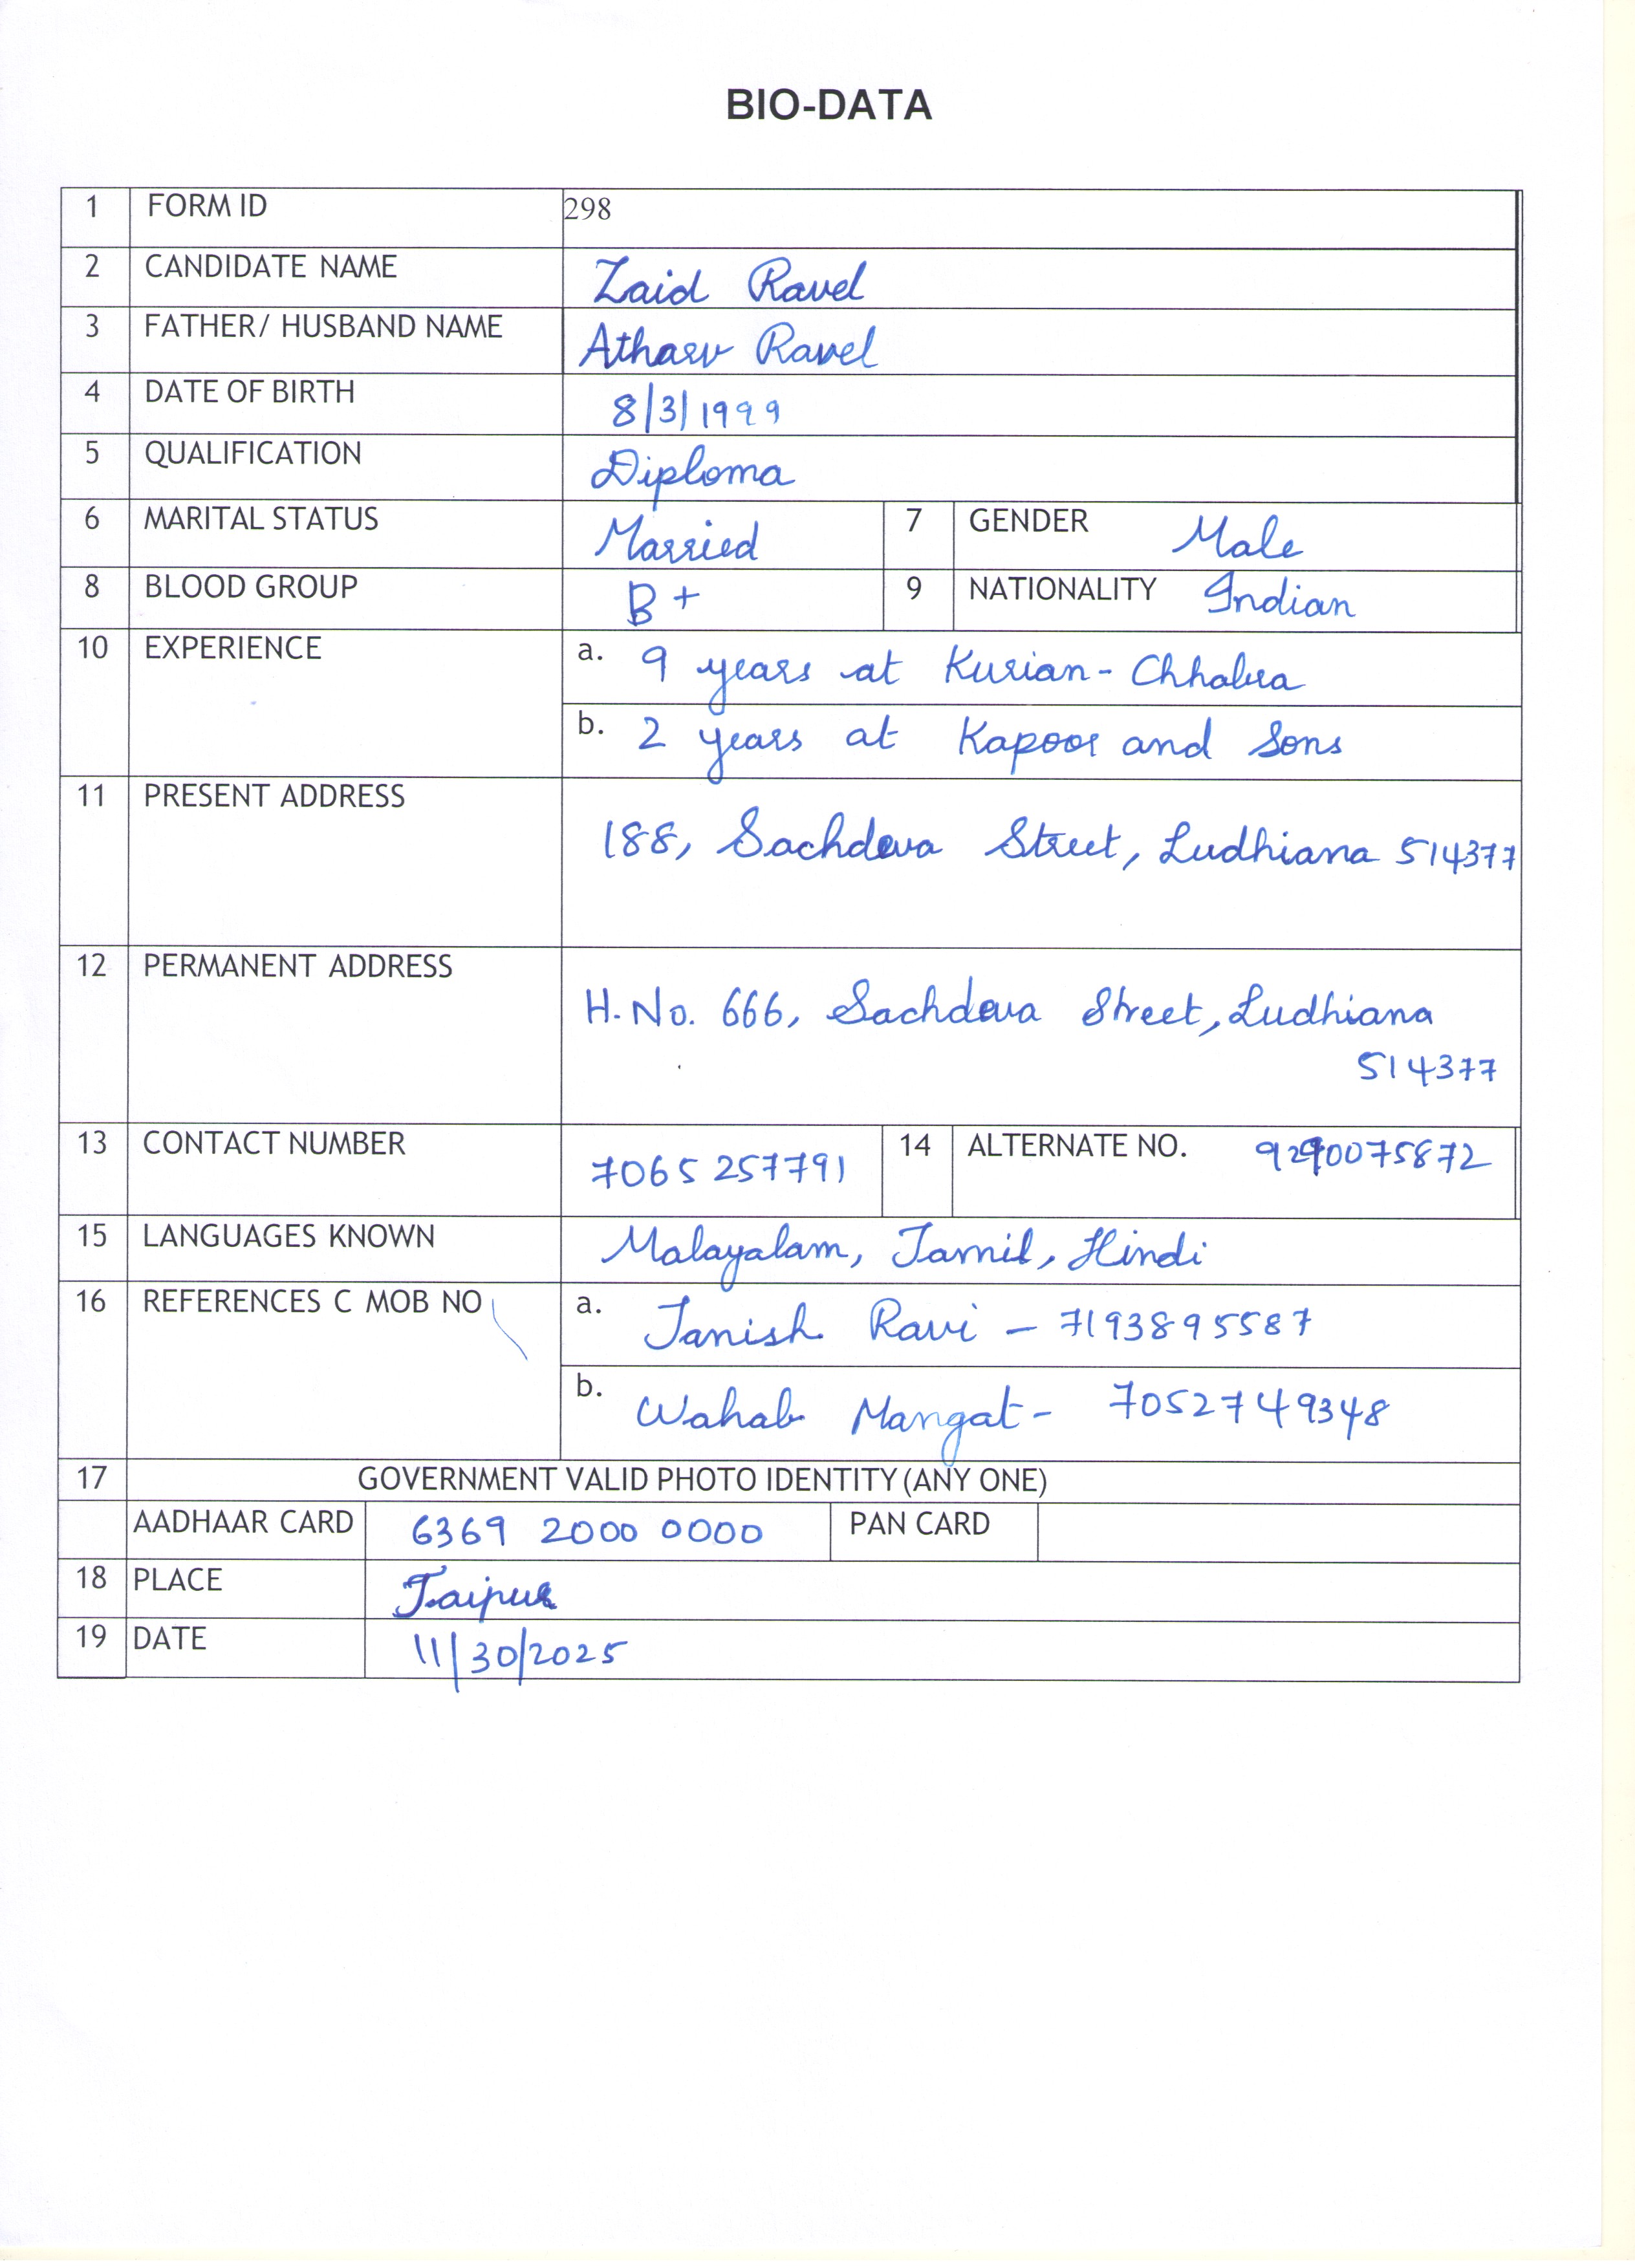 BIO-DATA
1 FORM ID 298
2 CANDIDATE NAME Zaid Ravel
3 FATHER/ HUSBAND NAME Atharv Ravel
4 DATE OF BIRTH 8/3/1999
5 QUALIFICATION Diploma
6 MARITAL STATUS Married 7 GENDER Male
8 BLOOD GROUP B+ 9 NATIONALITY Indian
10 EXPERIENCE a. 9 years at Kurian-Chhabra
b. 2 years at Kapoor and Sons
11 PRESENT ADDRESS 188, Sachdeva Street, Ludhiana 514377
12 PERMANENT ADDRESS H.No. 666, Sachdeva Street, Ludhiana
514377
13 CONTACT NUMBER 7065257791 14 ALTERNATE NO.
15 LANGUAGES KNOWN Malayalam, Tamil, Hindi
16 REFERENCES C MOB NO a. Tanish Ravi - 7193895587
b. Wahab Mangat - 7052749348
17 GOVERNMENT VALID PHOTO IDENTITY (ANY ONE)
AADHAAR CARD 6369 2000 0000 PAN CARD
18 PLACE Jaipur
19 DATE 11/30/2025